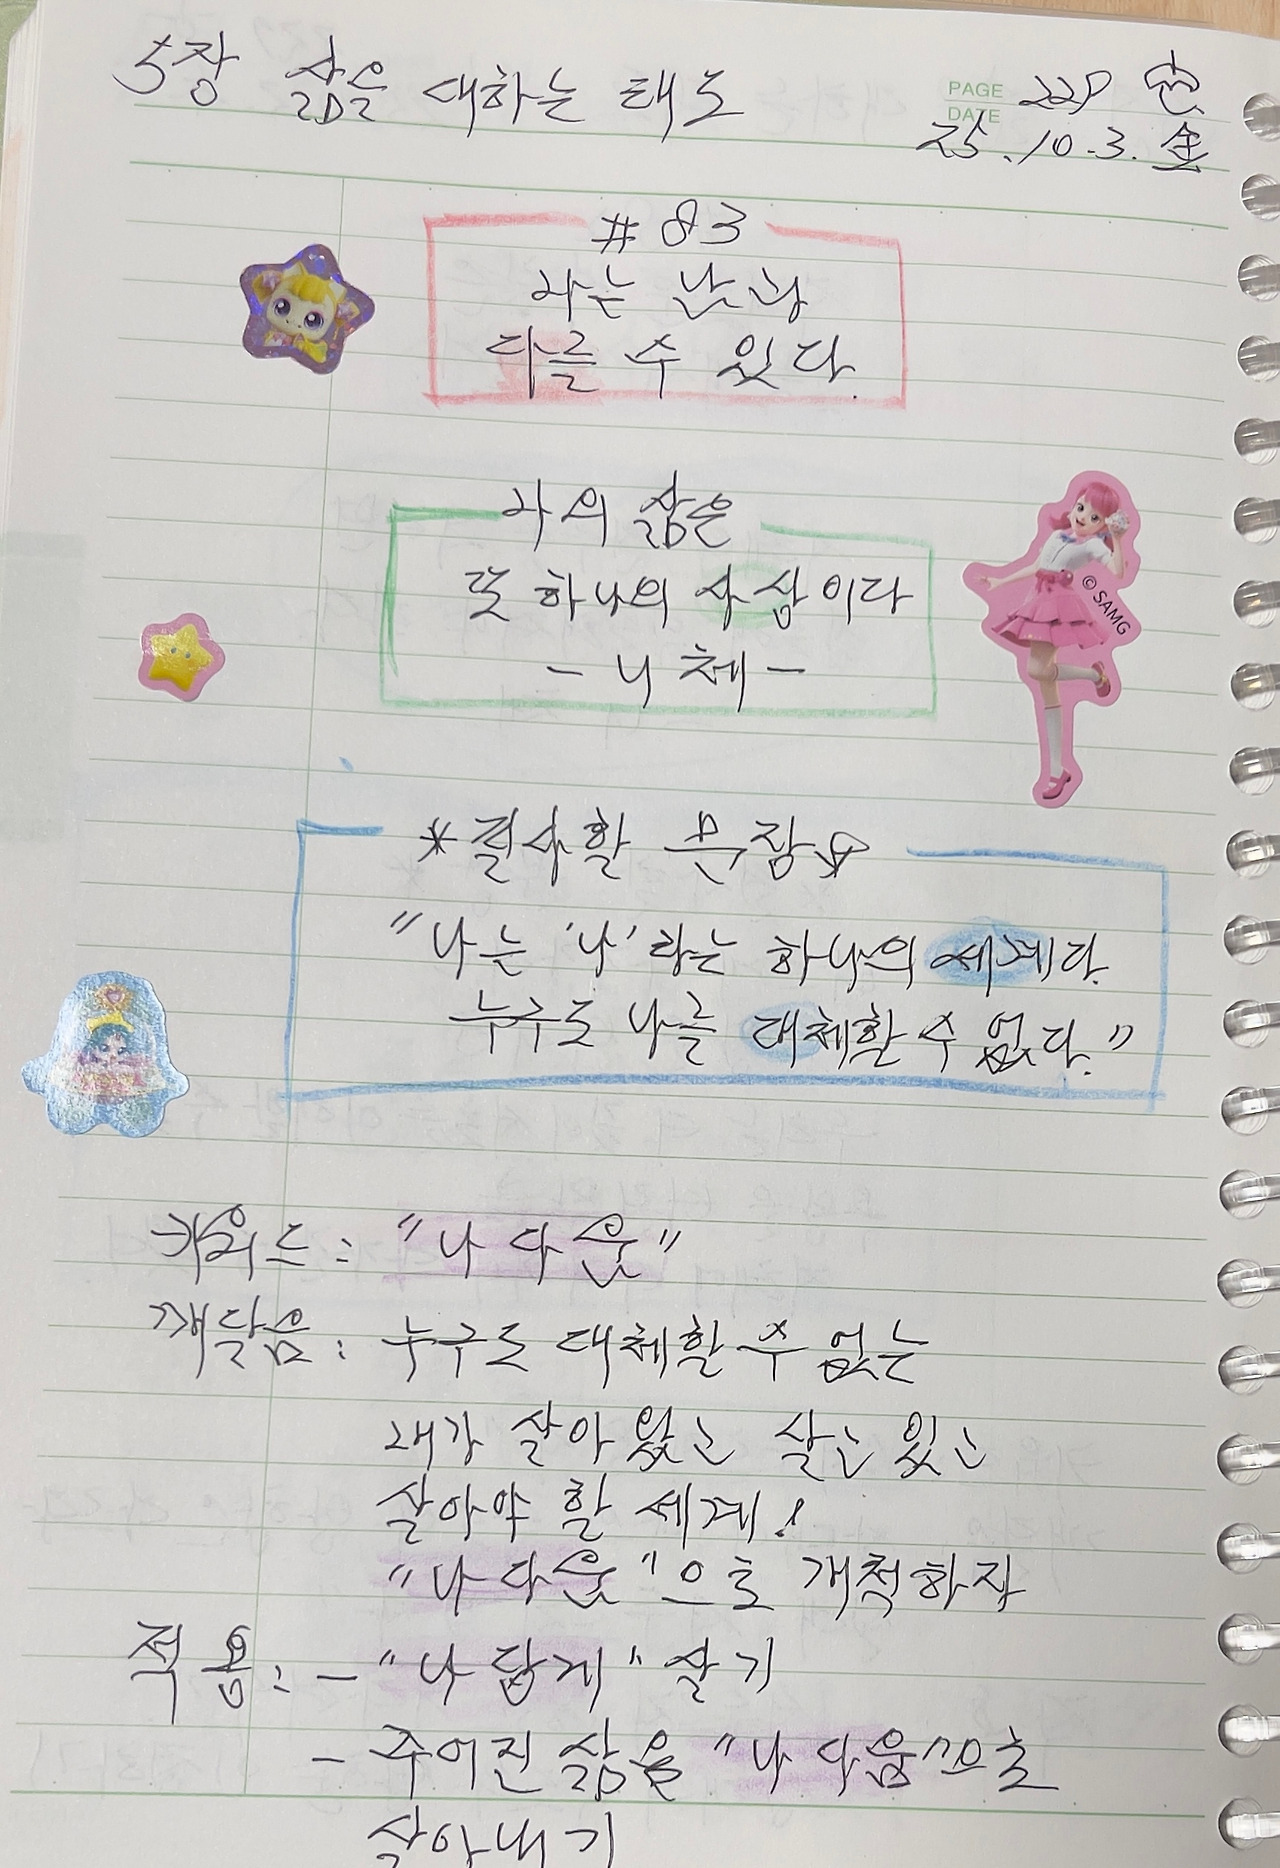 5장 삶을 대하는 태도
PAGE 22P
DATE 25.10.3.金
#83
나는 남과
다를 수 있다.
나의 삶은
또 하나의 사상이다
- 니체 -
*필사할 문장
"나는 '나'라는 하나의 세계다.
누구도 나를 대체할 수 없다."
© SAMG
키워드: "나다움"
깨달음: 누구도 대체할 수 없는
내가 살아 왔고 살고 있고
살아야 할 세계!
"나다움"으로 개척하자
적용: - "나 답게" 살기
- 주어진 삶을 "나다움"으로
살아내기